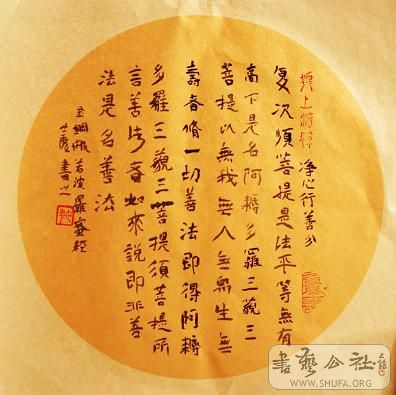 淨心行善分
复次須菩提是法平等無有
高下是名阿耨多羅三藐三
菩提以無我無人無眾生無
壽者脩一切善法即得阿耨
多羅三藐三菩提須菩提所
言善法者如來說即非善
法是名善法
金剛般若波羅蜜經
書之
書藝公社
WWW.SHUFA.ORG